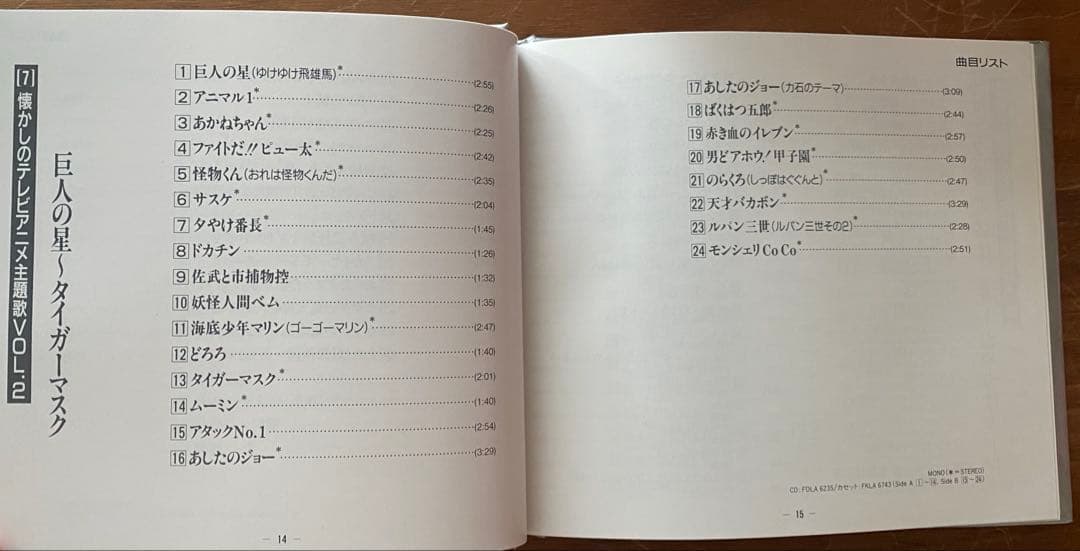 [7] 懐かしのテレビアニメ主題歌VOL.2
巨人の星〜タイガーマスク
1 巨人の星(ゆけゆけ飛雄馬)* (2:55)
2 アニマル1* (2:26)
3 あかねちゃん* (2:25)
4 ファイトだ!!ピュー太* (2:42)
5 怪物くん(おれは怪物くんだ)* (2:35)
6 サスケ* (2:04)
7 夕やけ番長* (1:45)
8 ドカチン (1:26)
9 佐武と市捕物控 (1:32)
10 妖怪人間ベム (1:35)
11 海底少年マリン(ゴーゴーマリン)* (2:47)
12 どろろ (1:40)
13 タイガーマスク* (2:01)
14 ムーミン* (1:40)
15 アタックNo.1 (2:54)
16 あしたのジョー* (3:29)
— 14 —
曲目リスト
17 あしたのジョー(力石のテーマ) (3:09)
18 ばくはつ五郎* (2:44)
19 赤き血のイレブン* (2:57)
20 男どアホウ!甲子園* (2:50)
21 のらくろ(しっぽはぐぐんと)* (2:47)
22 天才バカボン* (3:29)
23 ルパン三世(ルパン三世その2)* (2:28)
24 モンシェリCoCo* (2:51)
MONO(*=STEREO)
CD:FDLA 6235/カセット:FKLA 6743(Side A 1〜14, Side B 15〜24)
— 15 —